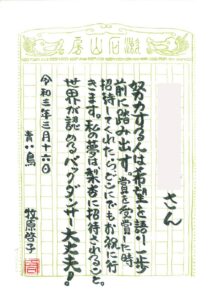 漱石山房
さん
努力する人は希望を語り一歩
前に踏み出す。賞を受賞した時
招待してくれたら、どこにでもお祝に行
きます。私の夢は梨杏に招待されること。
世界が認めるバックダンサー大丈夫!
令和三年三月十六日
青い鳥
牧原啓子